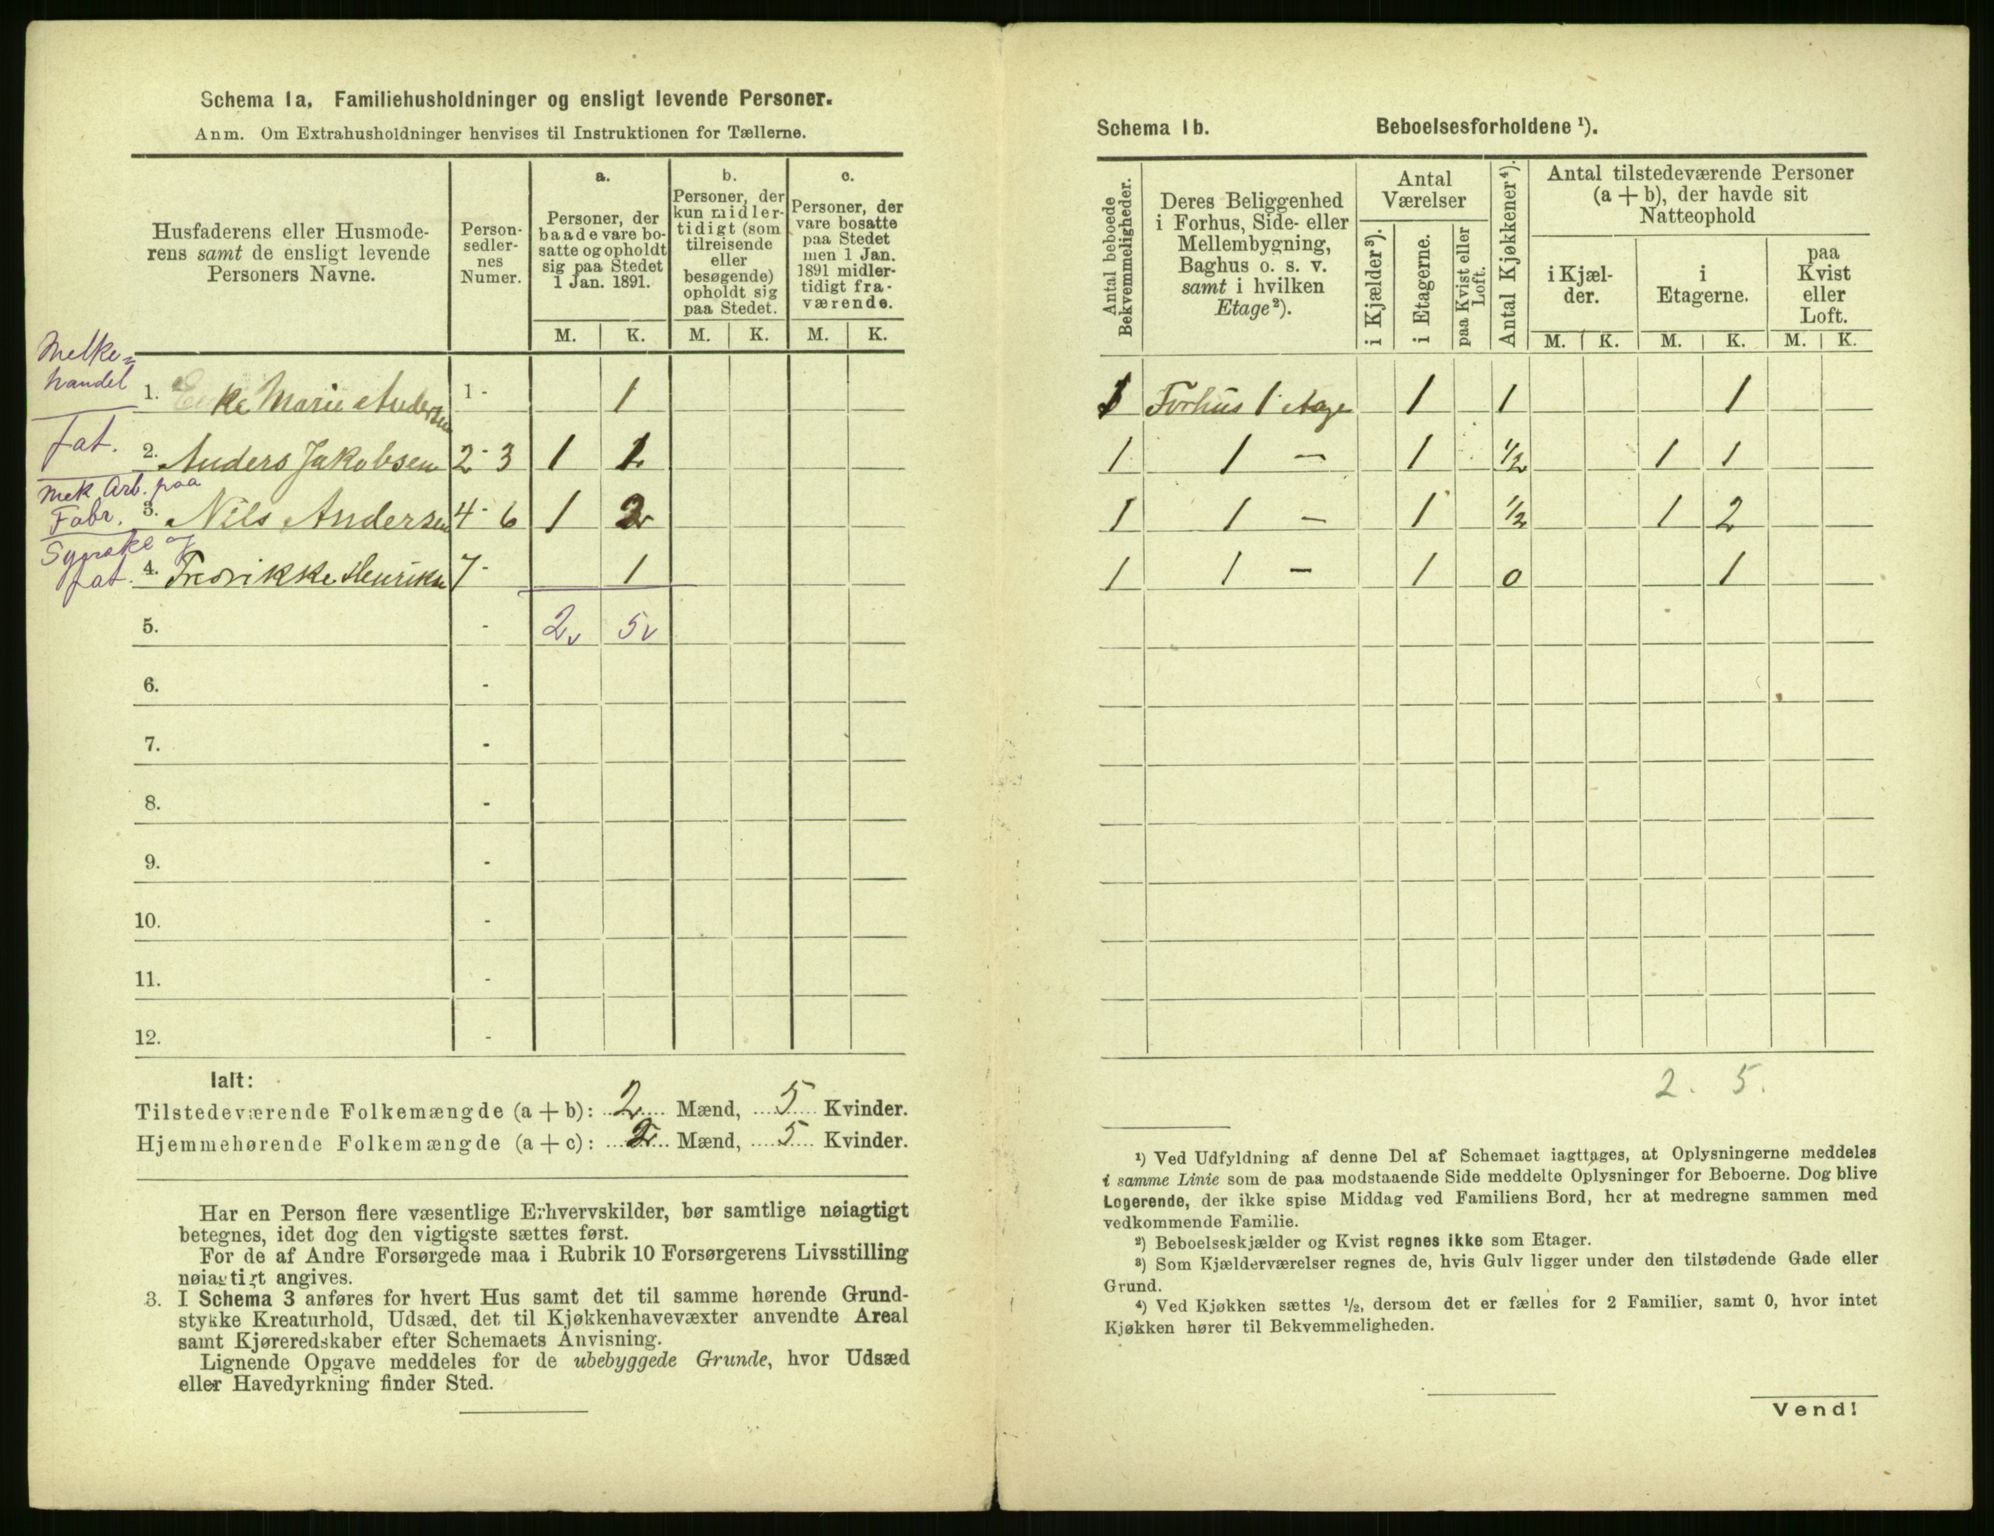 Schema 1a. Familiehusholdninger og ensligt levende Personer.
Anm. Om Extrahusholdninger henvises til Instruktionen for Tællerne.
Husfaderens eller Husmode-
rens samt de ensligt levende
Personers Navne.
Person-
sedler-
nes
Numer.
a.
Personer, der
baade vare bo-
satte og opholdt
sig paa Stedet
1 Jan. 1891.
b.
Personer, der
kun midler-
tidigt (som
tilreisende
eller
besøgende)
opholdt sig
paa Stedet.
c.
Personer, der
vare bosatte
paa Stedet
men 1 Jan.
1891 midler-
tidigt fra-
værende.
M. K. M. K. M. K.
Melke-
handel
1. Enke Marie Andersen 1 - 1
fat.
2. Anders Jakobsen 2 - 3 1 1
Mek. Arb. paa
Fabr.
3. Nils Andersen 4 - 6 1 2
Syerske og
fat.
4. Fredrikke Henriks 7 - 1
5. - 2 5
6. -
7. -
8. -
9. -
10. -
11. -
12. -
Ialt:
Tilstedeværende Folkemængde (a + b): 2 Mænd, 5 Kvinder.
Hjemmehørende Folkemængde (a + c): 2 Mænd, 5 Kvinder.
Har en Person flere væsentlige Erhvervskilder, bør samtlige nøiagtigt
betegnes, idet dog den vigtigste sættes først.
For de af Andre Forsørgede maa i Rubrik 10 Forsørgerens Livsstilling
nøiagtigt angives.
3. I Schema 3 anføres for hvert Hus samt det til samme hørende Grund-
stykke Kreaturhold, Udsæd, det til Kjøkkenhavevæxter anvendte Areal
samt Kjøreredskaber efter Schemaets Anvisning.
Lignende Opgave meddeles for de ubebyggede Grunde, hvor Udsæd
eller Havedyrkning finder Sted.
Schema 1b. Beboelsesforholdene ¹).
Antal beboede
Bekvemmeligheder.
Deres Beliggenhed
i Forhus, Side- eller
Mellembygning,
Baghus o. s. v.
samt i hvilken
Etage²).
Antal
Værelser
i Kjælder³).
i Etagerne.
paa Kvist eller
Loft.
Antal Kjøkkener⁴).
Antal tilstedeværende Personer
(a + b), der havde sit
Natteophold
i Kjæl-
der.
i
Etagerne.
paa
Kvist
eller
Loft.
M. K. M. K. M. K.
1 Forhus 1 Etage 1 1 1
1 1 - 1 ½ 1 1
1 1 - 1 ½ 1 2
1 1 - 1 0 1
2. 5.
¹) Ved Udfyldning af denne Del af Schemaet iagttages, at Oplysningerne meddeles
i samme Linie som de paa modstaaende Side meddelte Oplysninger for Beboerne. Dog blive
Logerende, der ikke spise Middag ved Familiens Bord, her at medregne sammen med
vedkommende Familie.
²) Beboelseskjælder og Kvist regnes ikke som Etager.
³) Som Kjælderværelser regnes de, hvis Gulv ligger under den tilstødende Gade eller
Grund.
⁴) Ved Kjøkken sættes ½, dersom det er fælles for 2 Familier, samt 0, hvor intet
Kjøkken hører til Bekvemmeligheden.
Vend!